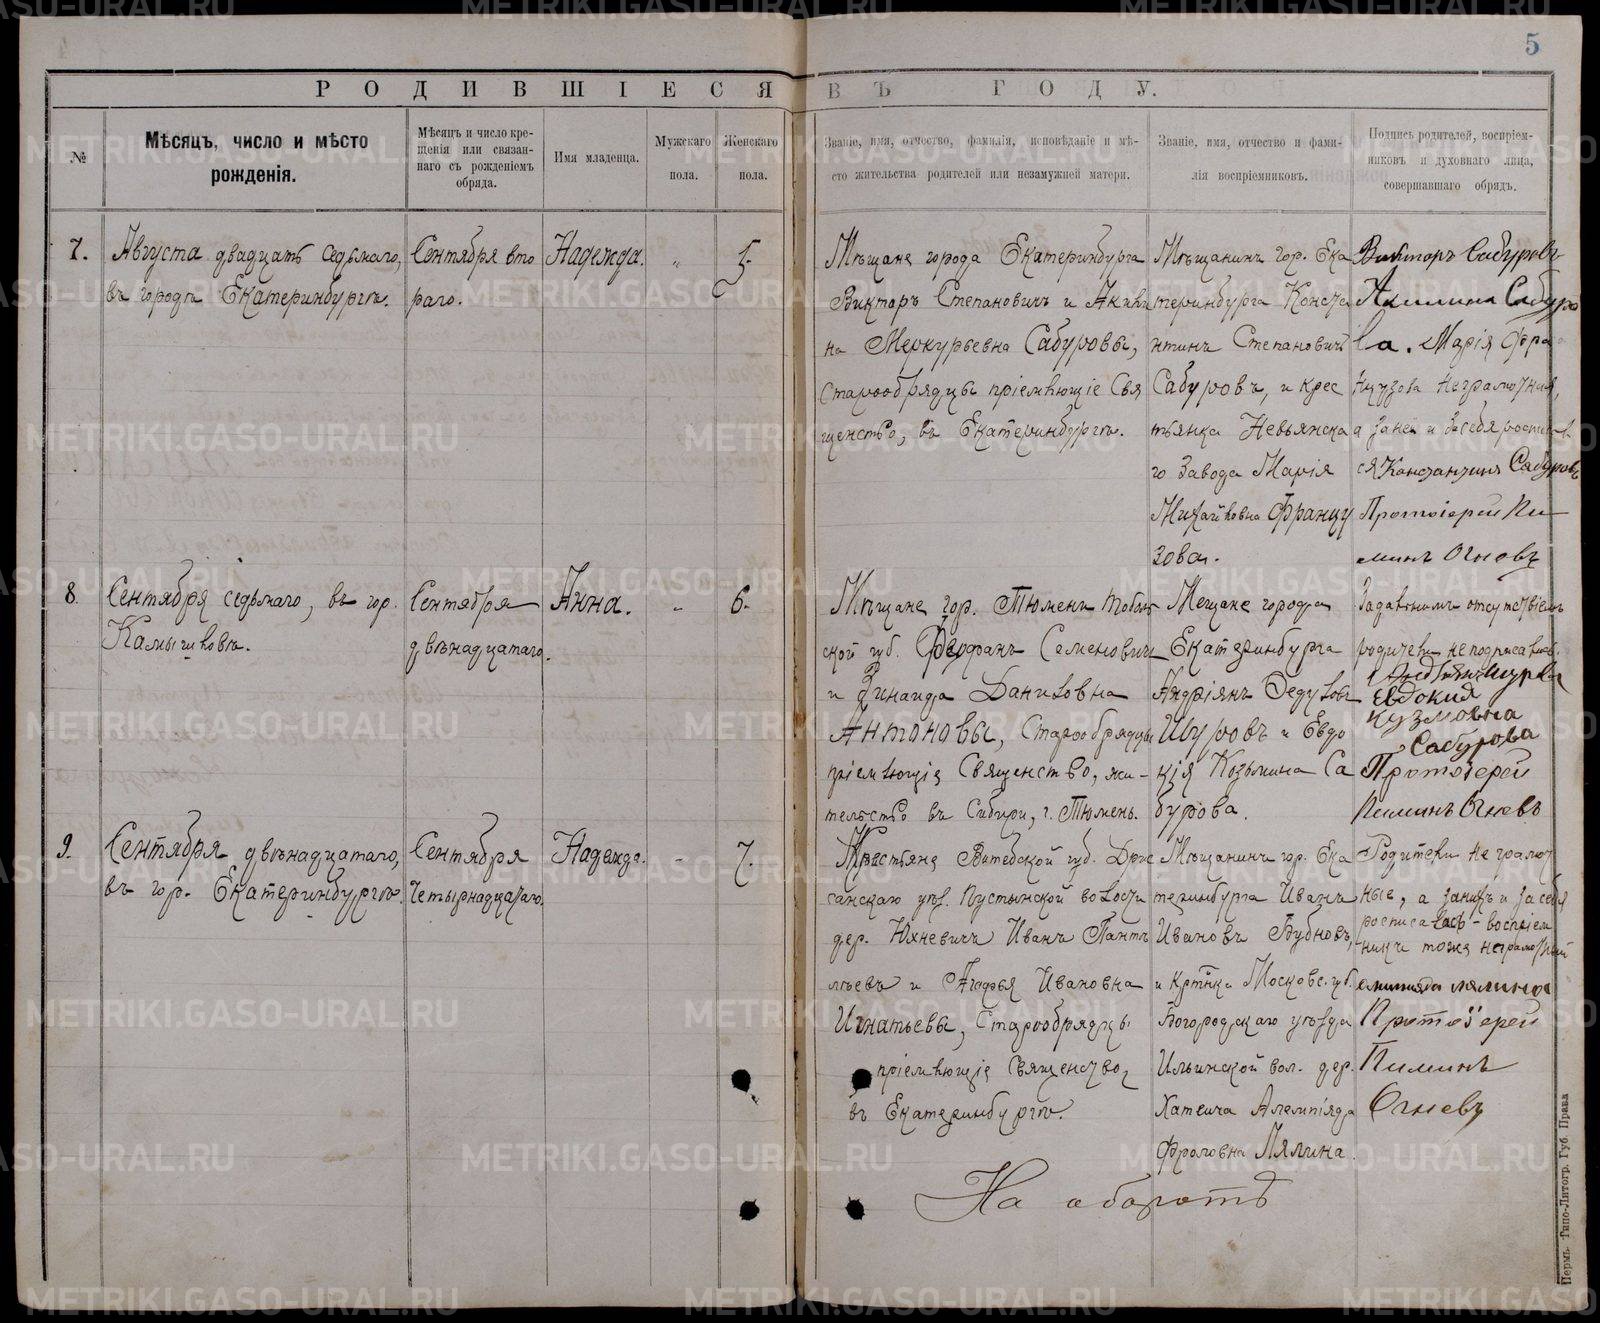 5
РОДИВШІЕСЯ ВЪ ГОДУ.
№
Мѣсяцъ, число и мѣсто
рожденія.
Мѣсяцъ и число кре-
щенія или связан-
наго съ рожденіемъ
обряда.
Имя младенца.
Мужскаго
пола.
Женскаго
пола.
Званіе, имя, отчество, фамилія, исповѣданіе и мѣ-
сто жительства родителей или незамужней матери.
Званіе, имя, отчество и фами-
лія воспріемниковъ.
Подпись родителей, воспріем-
никовъ и духовнаго лица,
совершавшаго обрядъ.
7.
Августа двадцать седьмаго,
въ городѣ Екатеринбургѣ.
Сентября вто
раго.
Надежда.
"
5.
Мѣщане города Екатеринбурга
Викторъ Степановичъ и Акили
на Меркурьевна Сабуровы,
Старообрядцы пріемлющіе Свя
щенство, въ Екатеринбургѣ.
Мѣщанинъ гор. Ека
теринбурга Конста
нтинъ Степановичъ
Сабуровъ, и крес
тьянка Невьянска
го завода Марія
Михайловна Францу
зова.
Викторъ Сабуровъ
Акилина Сабуро
ва. Марія Фра
нцузова неграмотная,
а за неё и за себя росписалъ
ся Константинъ Сабуровъ
Протоіерей Пи
минъ Огневъ
8.
Сентября седьмаго, въ гор.
Камышловѣ.
Сентября
двѣнадцатаго.
Анна.
"
6.
Мѣщане гор. Тюмень Тоболь
ской губ. Феофанъ Семеновичъ
и Зинаида Даниловна
Антоновы, Старообрядцы
пріемлющіе Священство, жи-
тельство въ Сибири, г. Тюмень.
Мещане города
Екатеринбурга
Андріянъ Федуловъ
Шуровъ и Евдо
кія Козьмина Са
бурова.
За давнимъ отсутствіемъ
родители не подписались.
Шуровъ
Евдокия
Кузмовна
Сабурова
Протоіерей
Пиминъ Огневъ
9.
Сентября двѣнадцатаго,
въ гор. Екатеринбургѣ.
Сентября
четырнадцатаго.
Надежда.
"
7.
Крестьяне Витебской губ. Дрис
санскаго уѣз. Пустынской волости
дер. Юхневичи Иванъ Панте
лѣевъ и Агафья Ивановна
Игнатьевы, Старообрядцы
пріемлющіе Священство,
въ Екатеринбургѣ.
Мѣщанинъ гор. Ека
теринбурга Иванъ
Ивановъ Бубновъ,
и кртнка Московс. губ.
Богородскаго уѣзда
Ильинской вол. дер.
Хатеича Алемпіяда
Фроловна Лялина.
Родители не грамот
ные, а за нихъ и за себя
росписалась - воспріем
никъ тоже неграмотный
Лялина
Протоіерей
Пиминъ
Огневъ
На оборотѣ
Пермь. Типо-Литогр. Губ. Права
METRIKI.GASO-URAL.RU